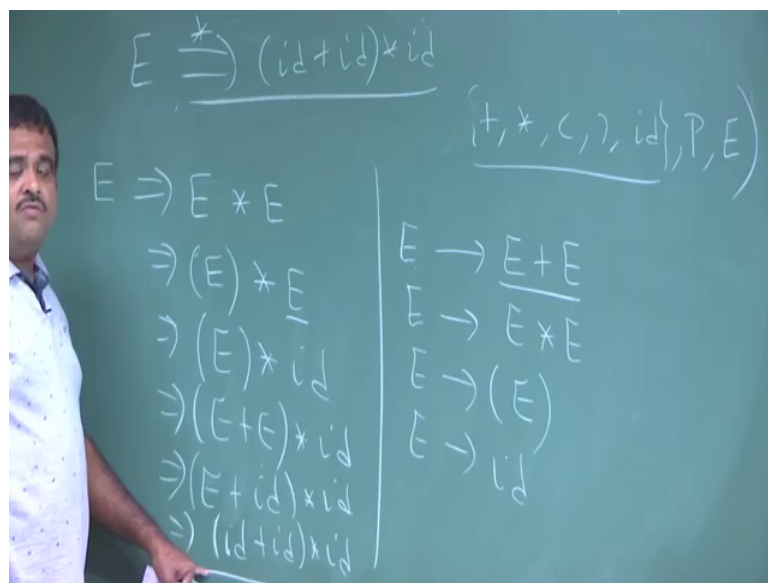 E ⇒* (id+id)*id
{+, *, (, ), id}, P, E)
E ⇒ E * E
⇒ (E) * E
⇒ (E) * id
⇒ (E+E) * id
⇒ (E+id) * id
⇒ (id+id)*id
E → E + E
E → E * E
E → (E)
E → id